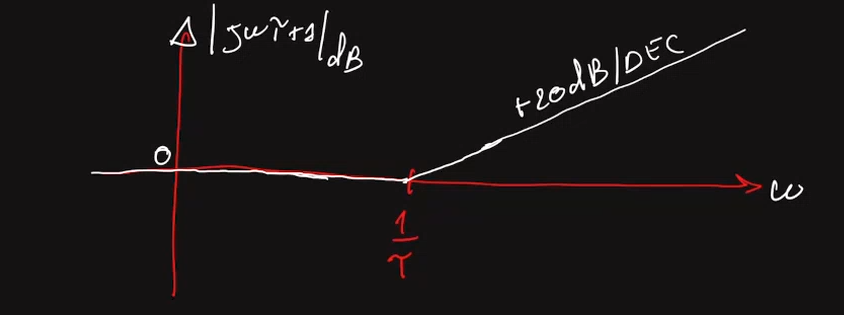 |jωτ+1|dB
+20dB/DEC
0
ω
1
τ